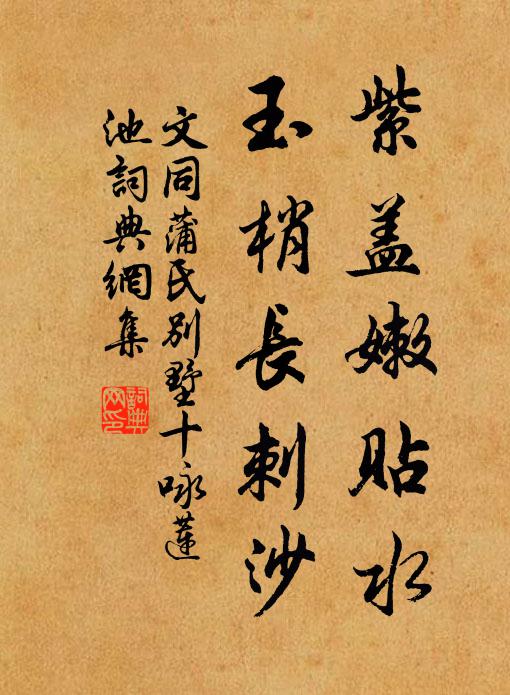 紫盖嫩貼水
玉梢長刺沙
文同蒲氏别墅十咏蓮
池詞典網集
詞典
网印